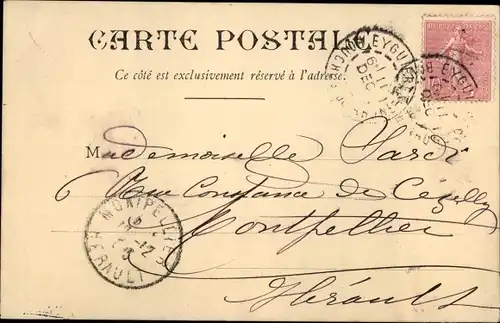 CARTE POSTALE
Ce côté est exclusivement réservé à l'adresse.
Mademoiselle Sardi
6 Rue Constance de Cézelly
Montpellier
Hérault
MONTPELLIER
HERAULT